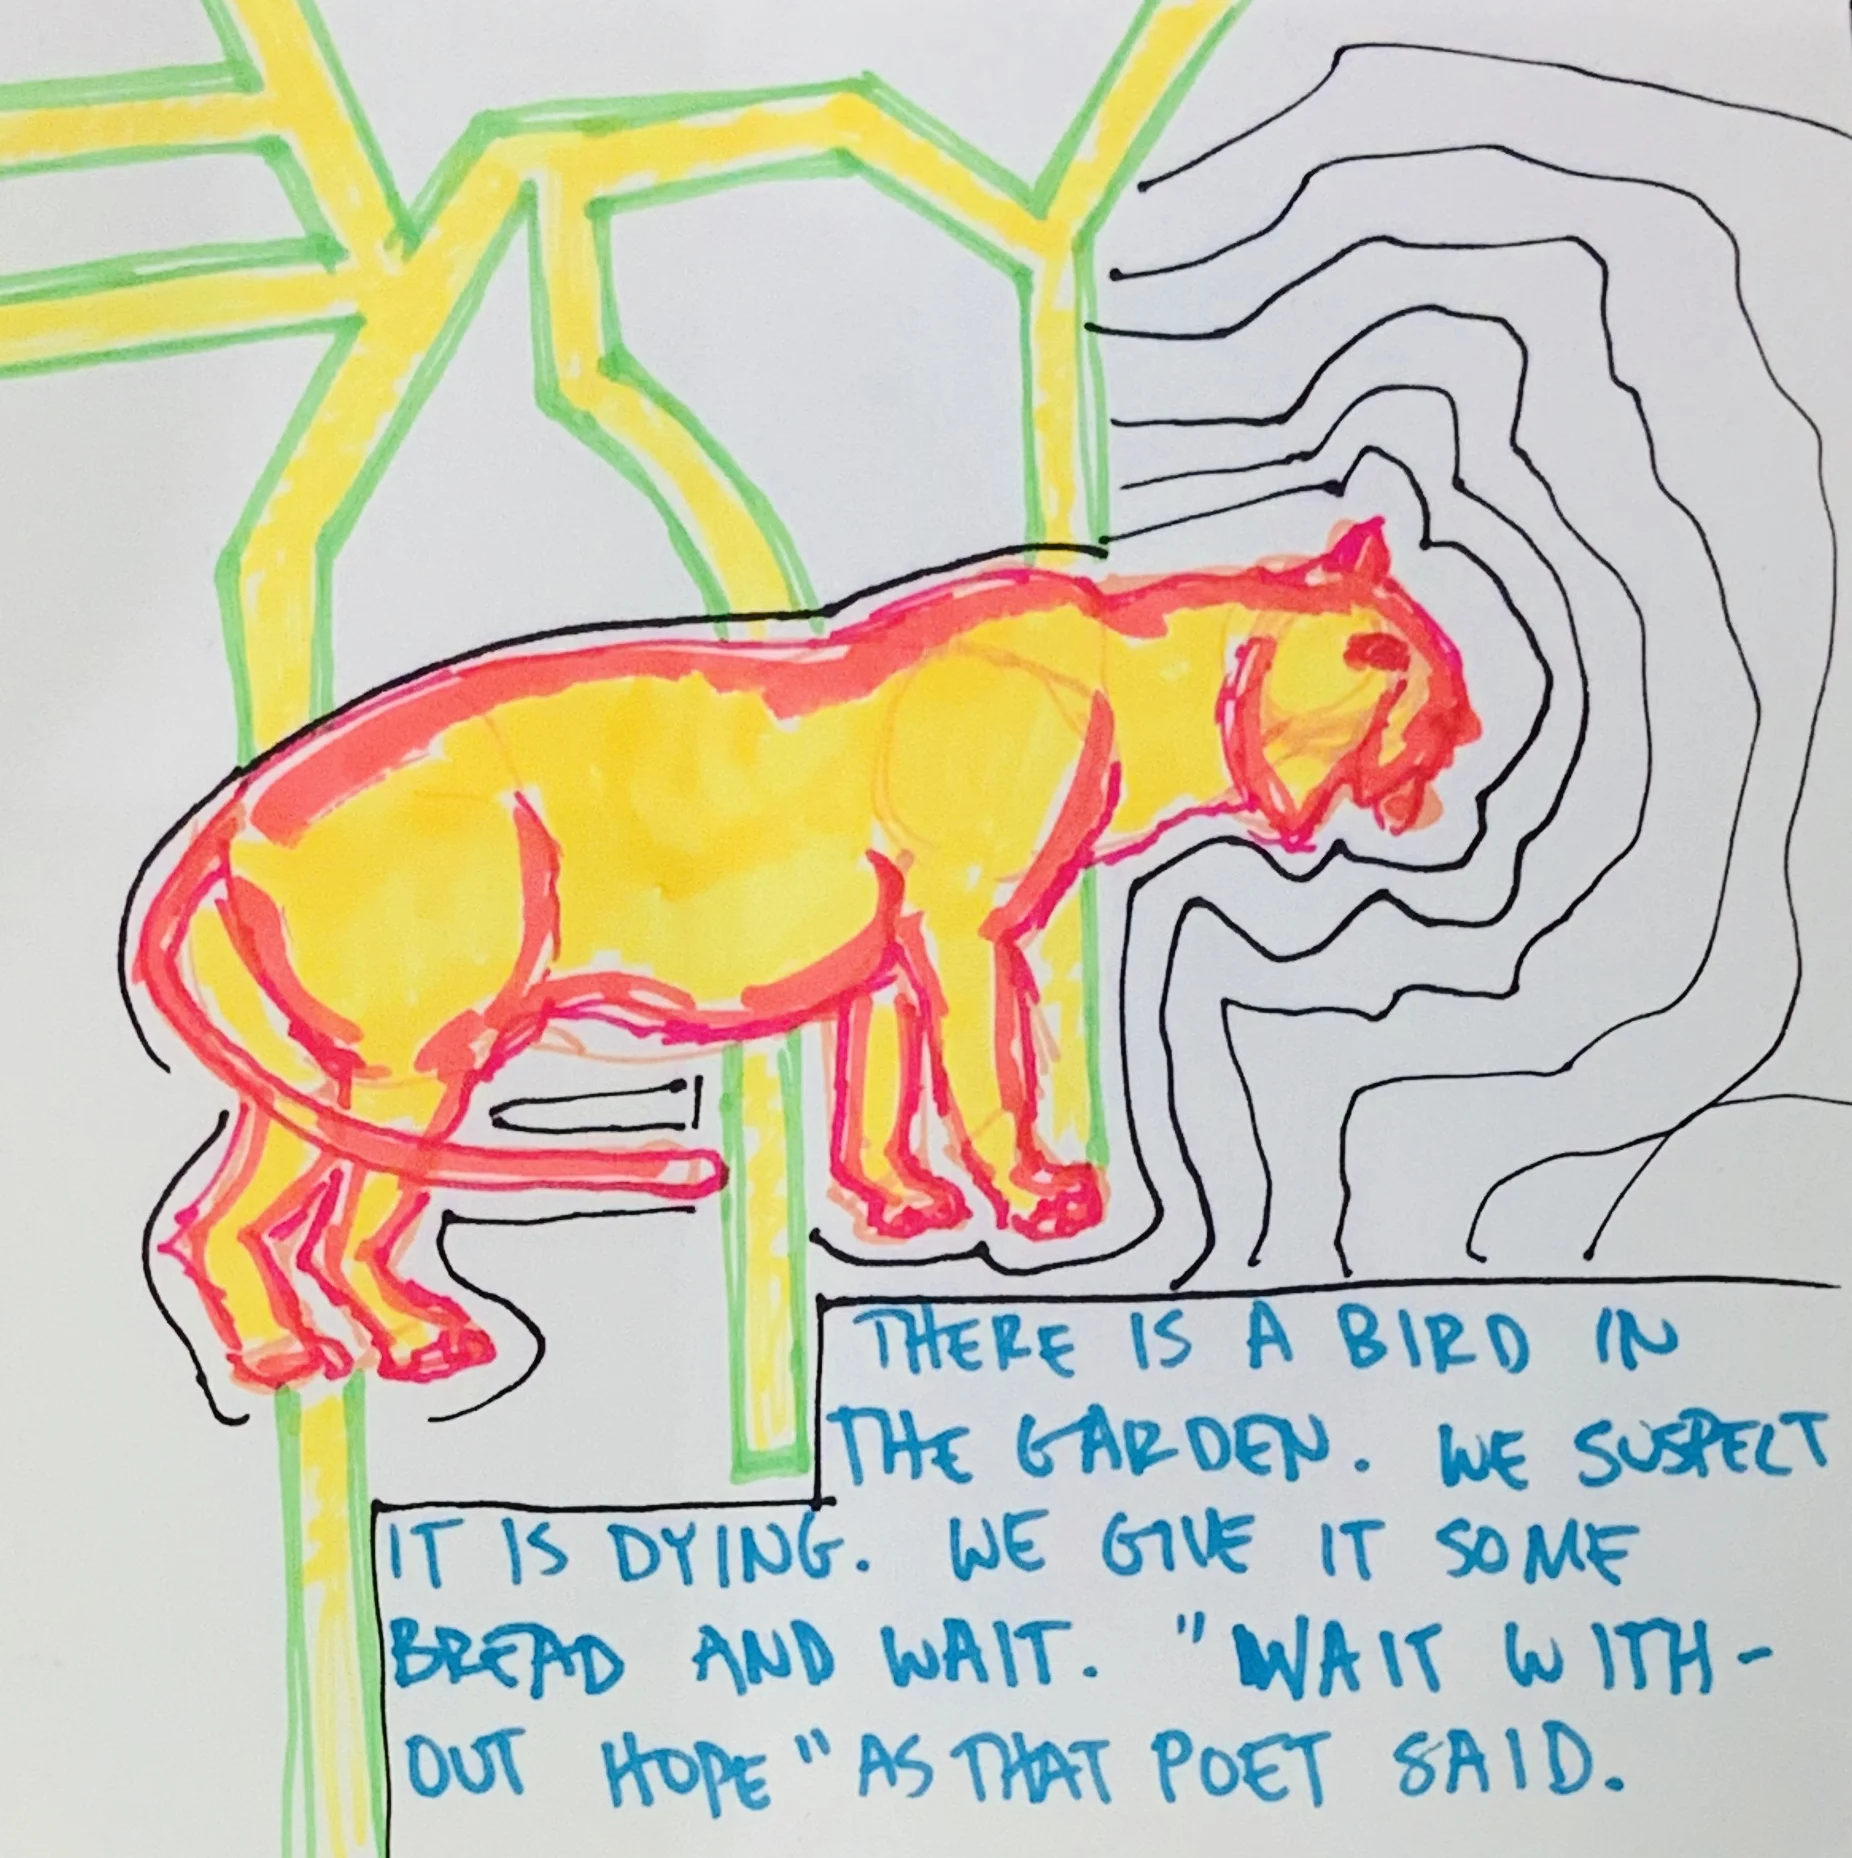 THERE IS A BIRD IN
THE GARDEN. WE SUSPECT
IT IS DYING. WE GIVE IT SOME
BREAD AND WAIT. "WAIT WITH-
OUT HOPE" AS THAT POET SAID.